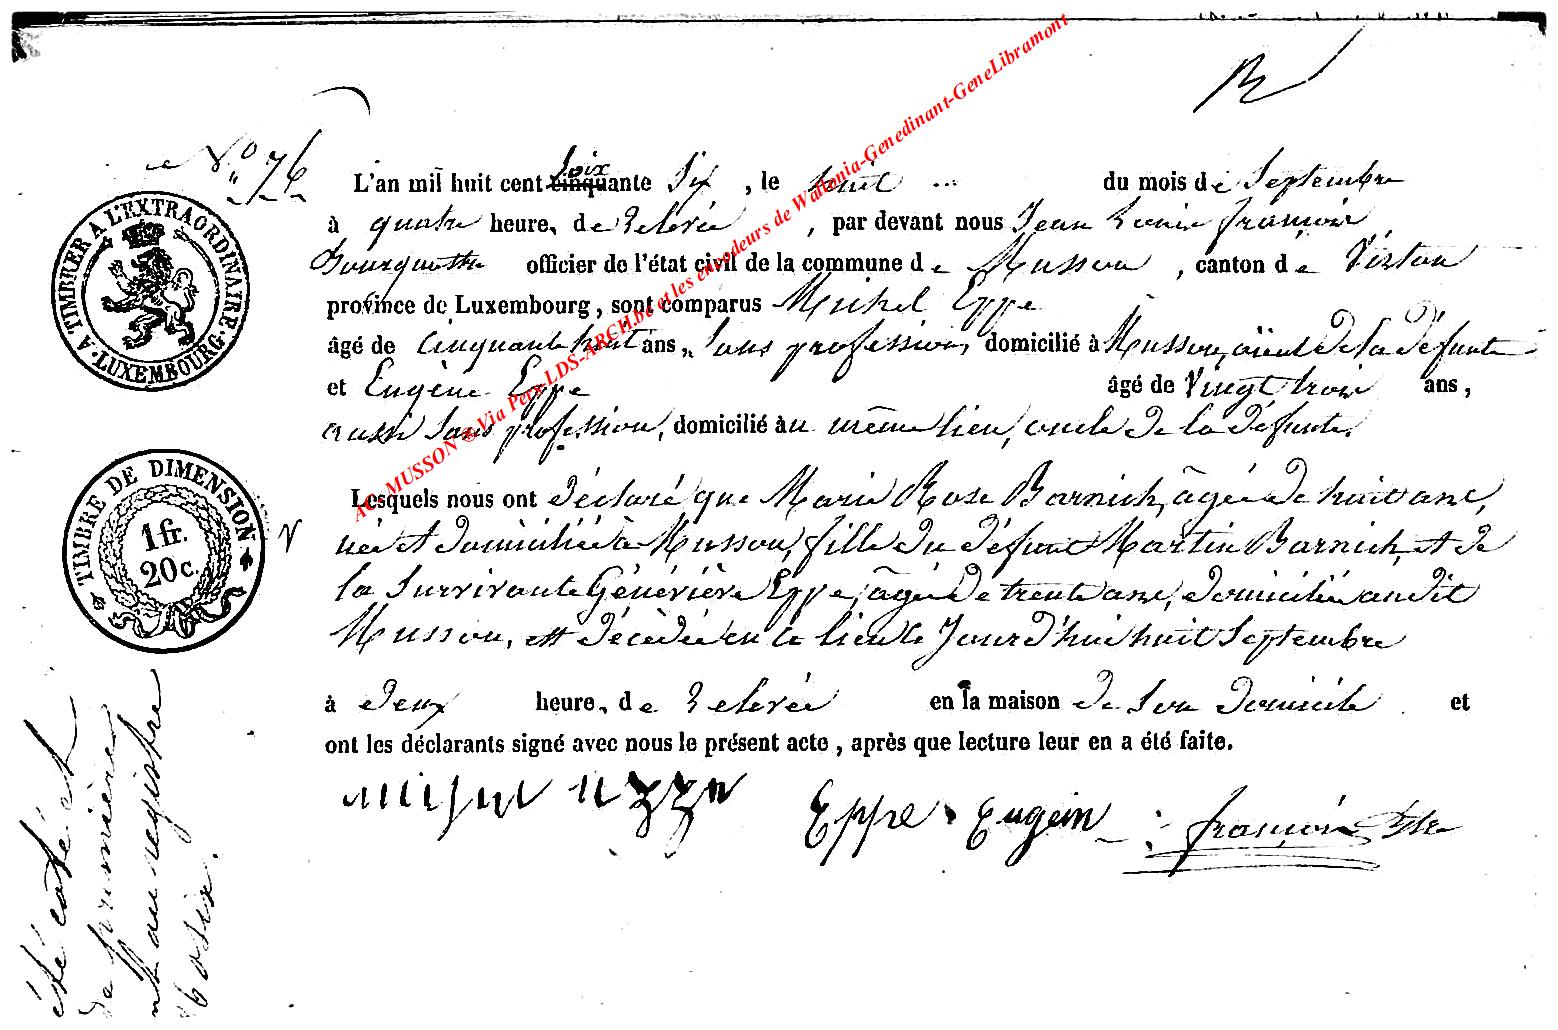 N° 76
L'an mil huit cent cinquante soix Six , le huit du mois de Septembre
à quatre heures de relevée , par devant nous Jean Louis françois
officier de l'état civil de la commune de Musson , canton de Virton
province de Luxembourg, sont comparus Michel Eppe
âgé de Cinquante huit ans, Sans profession, domicilié à Musson, aïeul de la défunte
et Eugène Eppe âgé de Vingt trois ans,
aussi Sans profession, domicilié au même lieu, oncle de la défunte.
Lesquels nous ont déclaré que Marie Rose Barnich, âgée de huit ans,
née et domiciliée à Musson, fille du défunt Martin Barnich, et de
la Survivante Généviève Eppe, âgée de trente ans, domiciliée au dit
Musson, est décédée en ce lieu le Jourd'hui huit Septembre
à deux heures de relevée en la maison de Son domicile et
ont les déclarants signé avec nous le présent acte, après que lecture leur en a été faite.
Michel Eppe Eppe Eugein françois
A TIMBRER A L'EXTRAORDINAIRE. LUXEMBOURG.
TIMBRE DE DIMENSION
1 fr.
20 c.
été coté et
première
au registre
AC- MUSSON © Via Perx-LDS-ARCH.be et les encodeurs de Wallonia-Genedinant-GeneLibramont